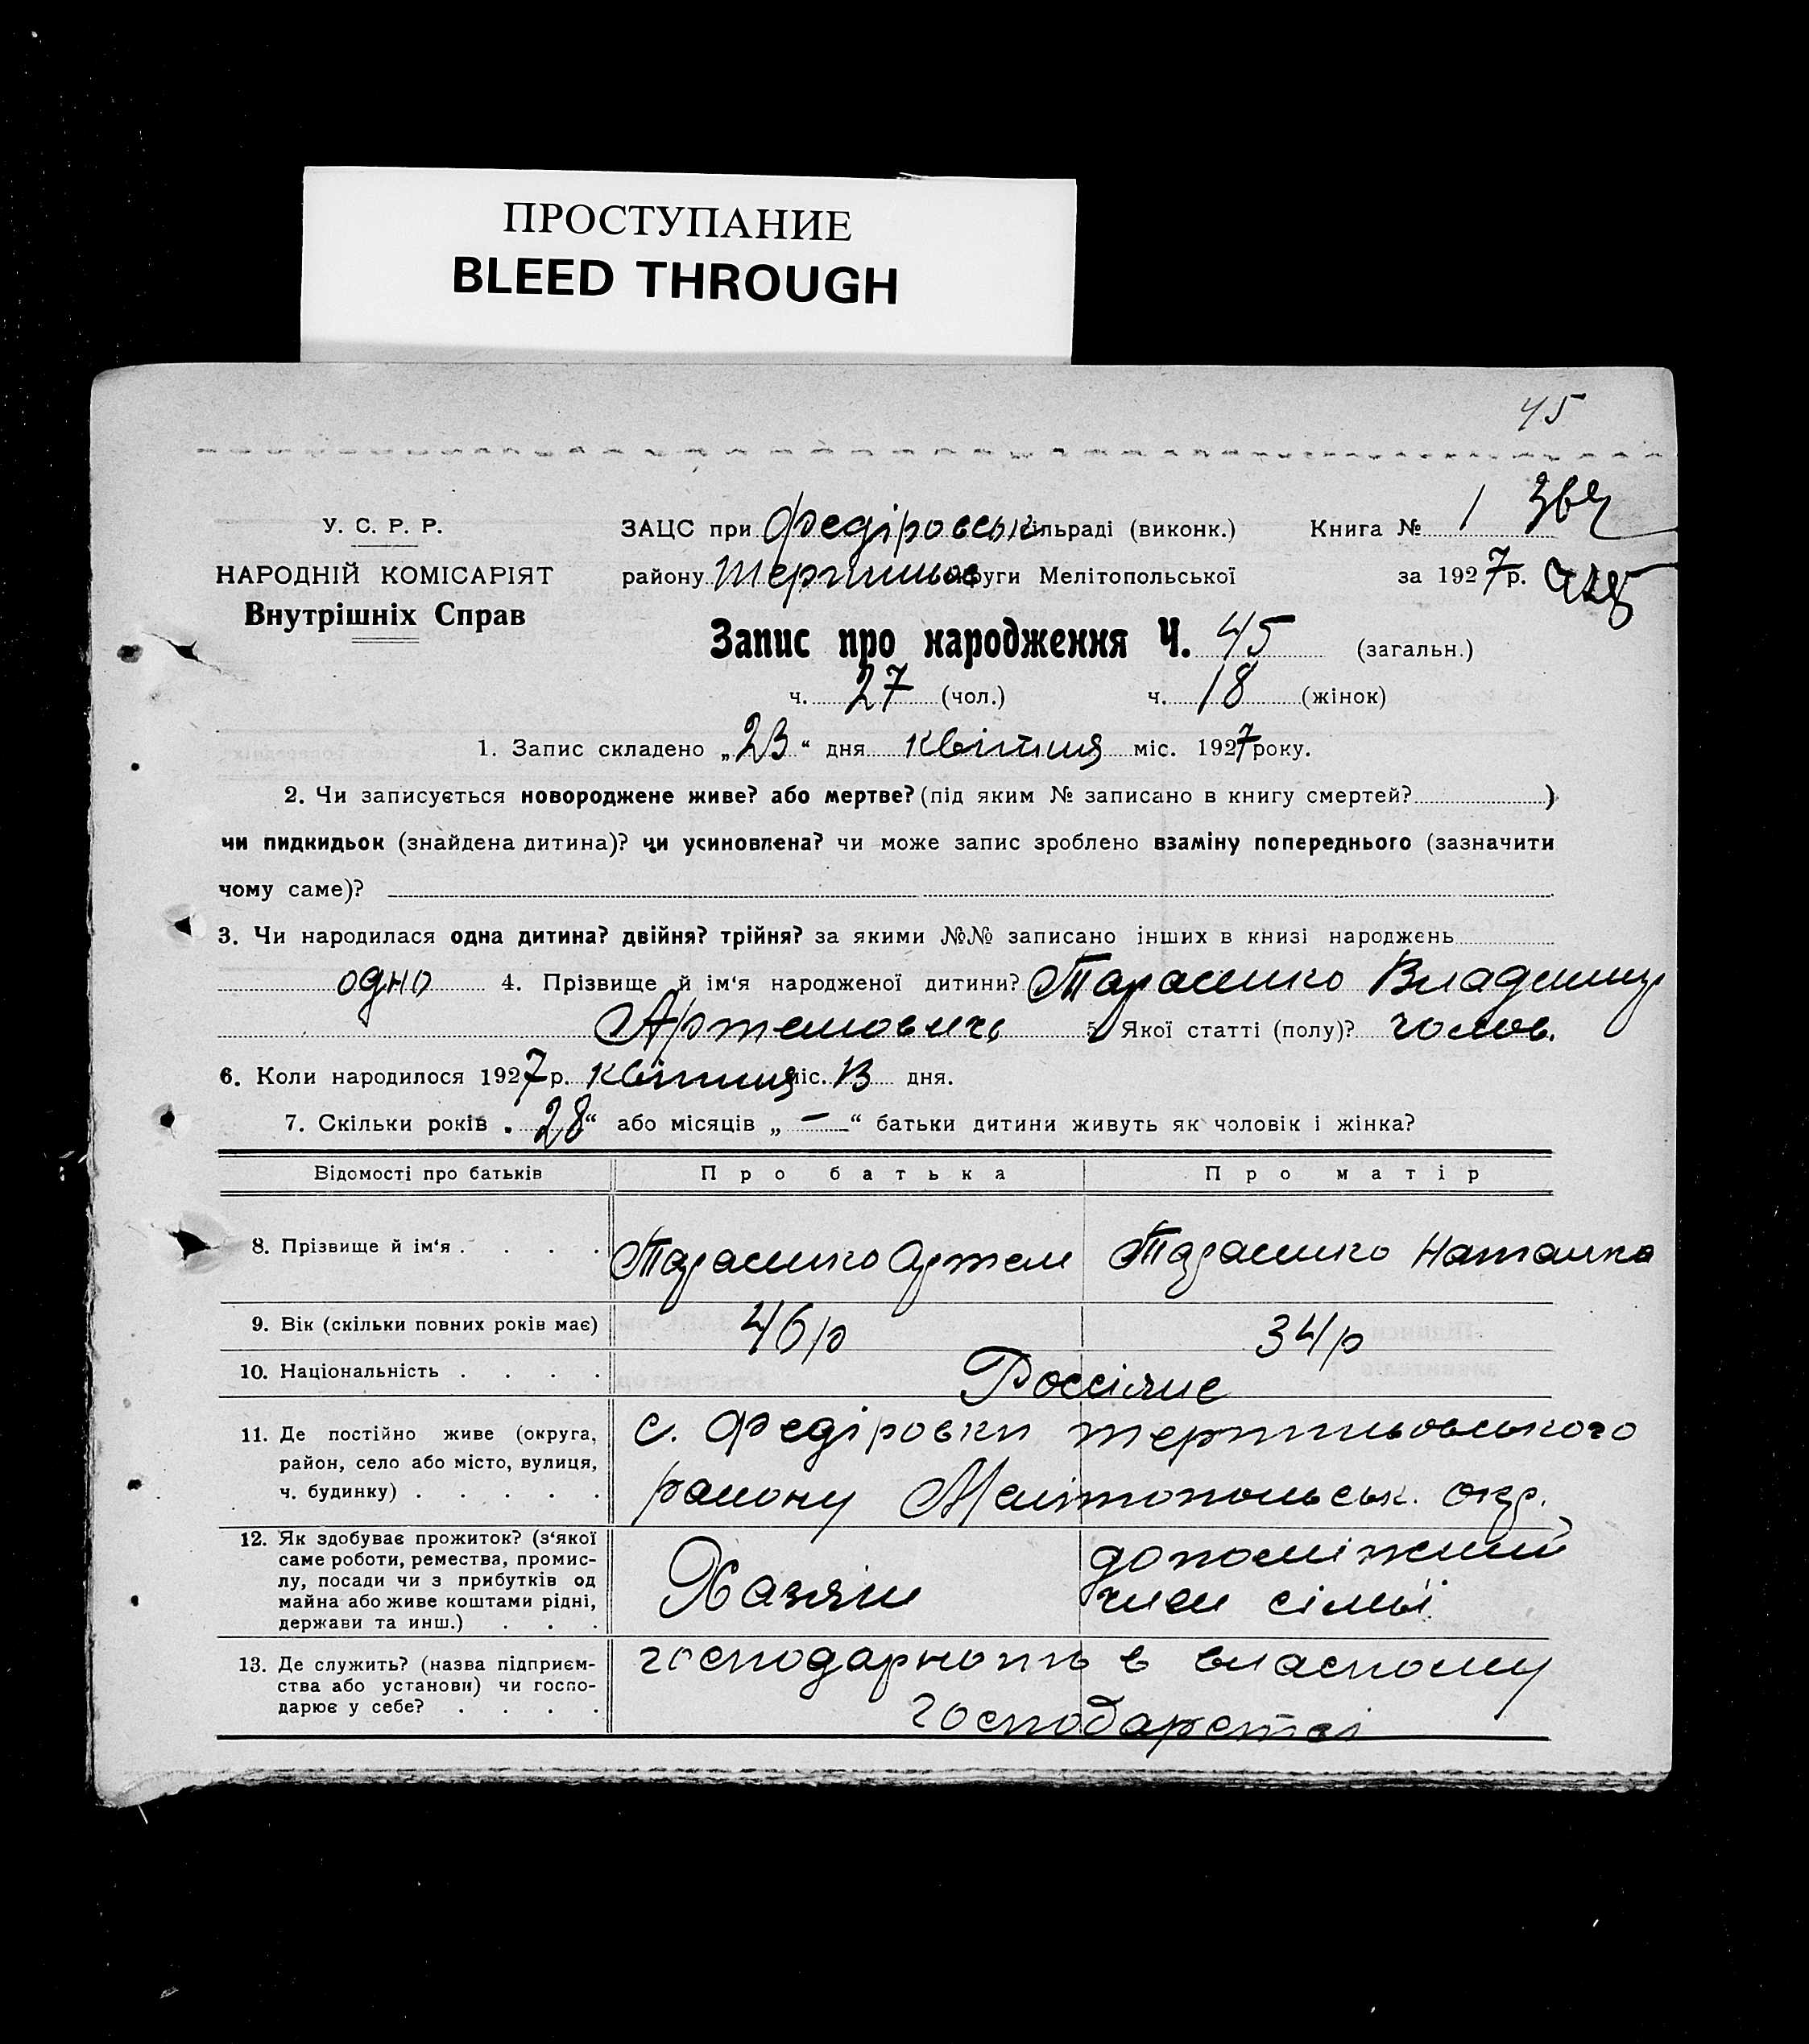 ПРОСТУПАНИЕ
BLEED THROUGH
45
У. С. Р. Р.
НАРОДНІЙ КОМІСАРІЯТ
Внутрішніх Справ
ЗАЦС при Федіровськ сільраді (виконк.) Книга № 1
району Терпиньов округи Мелітопольської за 1927 р.
Запис про народження Ч. 45 (загальн.)
ч. 27 (чол.) ч. 18 (жінок)
1. Запис складено „23“ дня квітня міс. 1927 року.
2. Чи записується новороджене живе? або мертве? (під яким № записано в книгу смертей? )
чи пидкидьок (знайдена дитина)? чи усиновлена? чи може запис зроблено взаміну попереднього (зазначити
чому саме)?
3. Чи народилася одна дитина? двійня? трійня? за якими №№ записано інших в книзі народжень
одно 4. Прізвище й ім‘я народженої дитини? Тарасенко Владимир
Артемович 5. Якої статті (полу)? чолов.
6. Коли народилося 1927 р. квітня міс. 13 дня.
7. Скільки років „28“ або місяців „—“ батьки дитини живуть як чоловік і жінка?
Відомості про батьків Про батька Про матір
8. Прізвище й ім‘я . . . . Тарасенко Артем Тарасенко Наталка
9. Вік (скільки повних років має) 46 р 34 р
10. Національність . . . . Россіяне
11. Де постійно живе (округа,
район, село або місто, вулиця,
ч. будинку) . . . . .
с. Федіровки терпиньовського
району Мелітопольськ. окр.
12. Як здобуває прожиток? (з‘якої
саме роботи, ремества, промис-
лу, посади чи з прибутків од
майна або живе коштами рідні,
держави та инш.) . . .
Хазяін
допоміжний
член сімьї
13. Де служить? (назва підприєм-
ства або установи) чи госпо-
дарює у себе? . . . .
господарюють в власному
господарстві